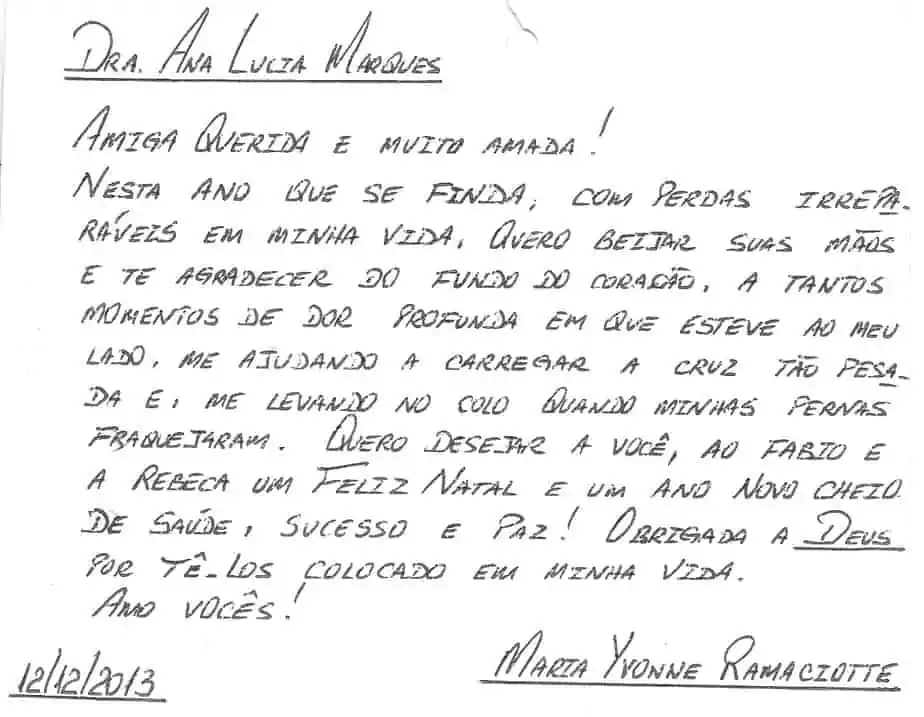 DRA. ANA LUCIA MARQUES
AMIGA QUERIDA E MUITO AMADA!
NESTA ANO QUE SE FINDA, COM PERDAS IRREPA-
RÁVEIS EM MINHA VIDA, QUERO BEIJAR SUAS MÃOS
E TE AGRADECER DO FUNDO DO CORAÇÃO, A TANTOS
MOMENTOS DE DOR PROFUNDA EM QUE ESTEVE AO MEU
LADO, ME AJUDANDO A CARREGAR A CRUZ TÃO PESA-
DA E, ME LEVANDO NO COLO QUANDO MINHAS PERNAS
FRAQUEJARAM. QUERO DESEJAR A VOCÊ, AO FABIO E
A REBECA UM FELIZ NATAL E UM ANO NOVO CHEIO
DE SAÚDE, SUCESSO E PAZ! OBRIGADA A DEUS
POR TÊ-LOS COLOCADO EM MINHA VIDA.
AMO VOCÊS!
12/12/2013 MARIA YVONNE RAMACIOTTE